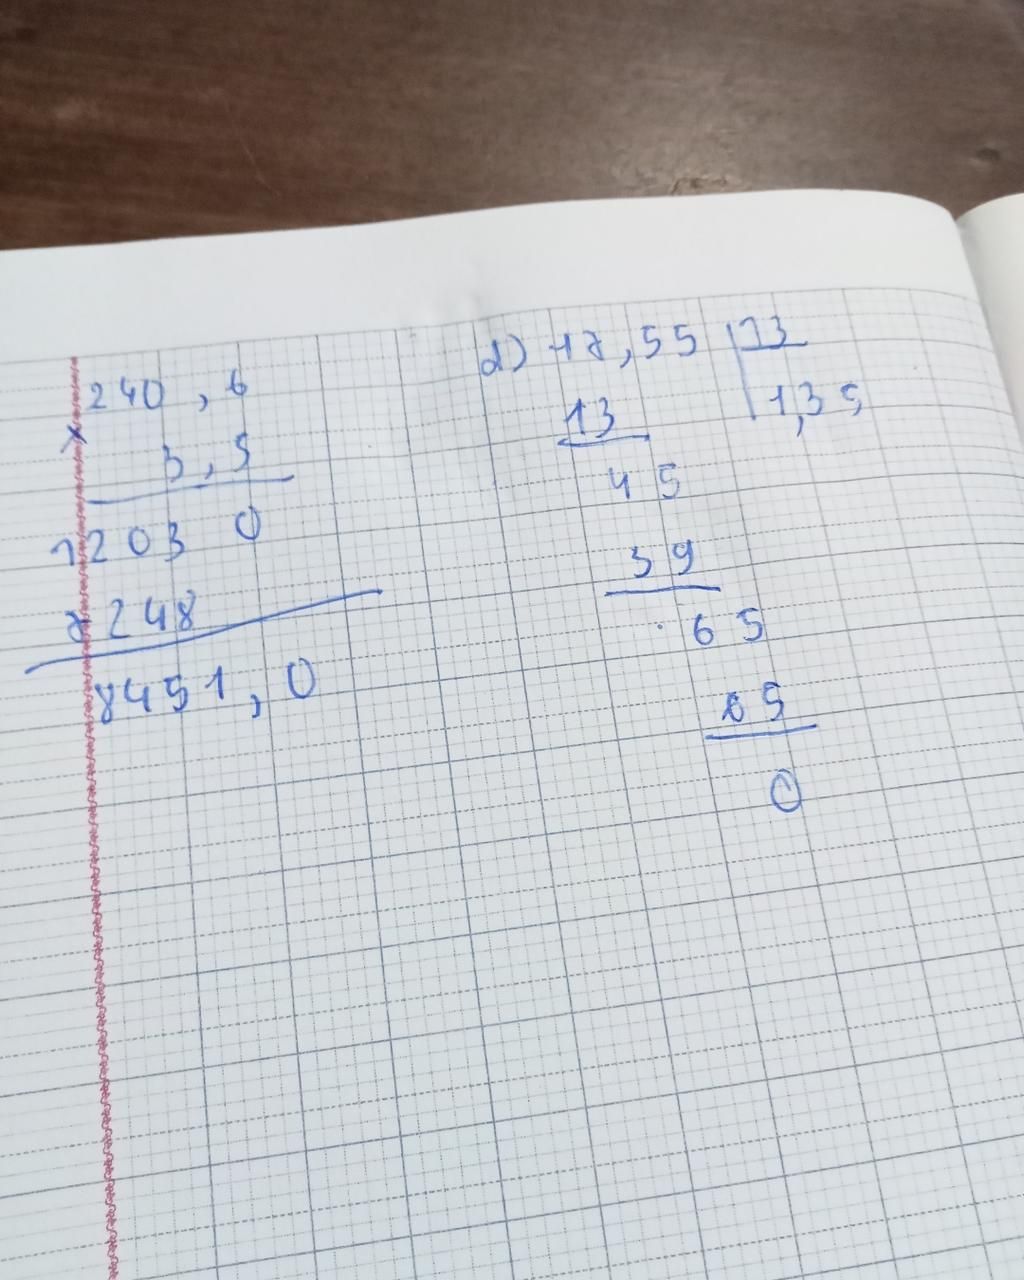 240,6
x
3,5
12030
7248
8451,0
d) 17,55 | 13
13
1,35
45
39
65
65
0